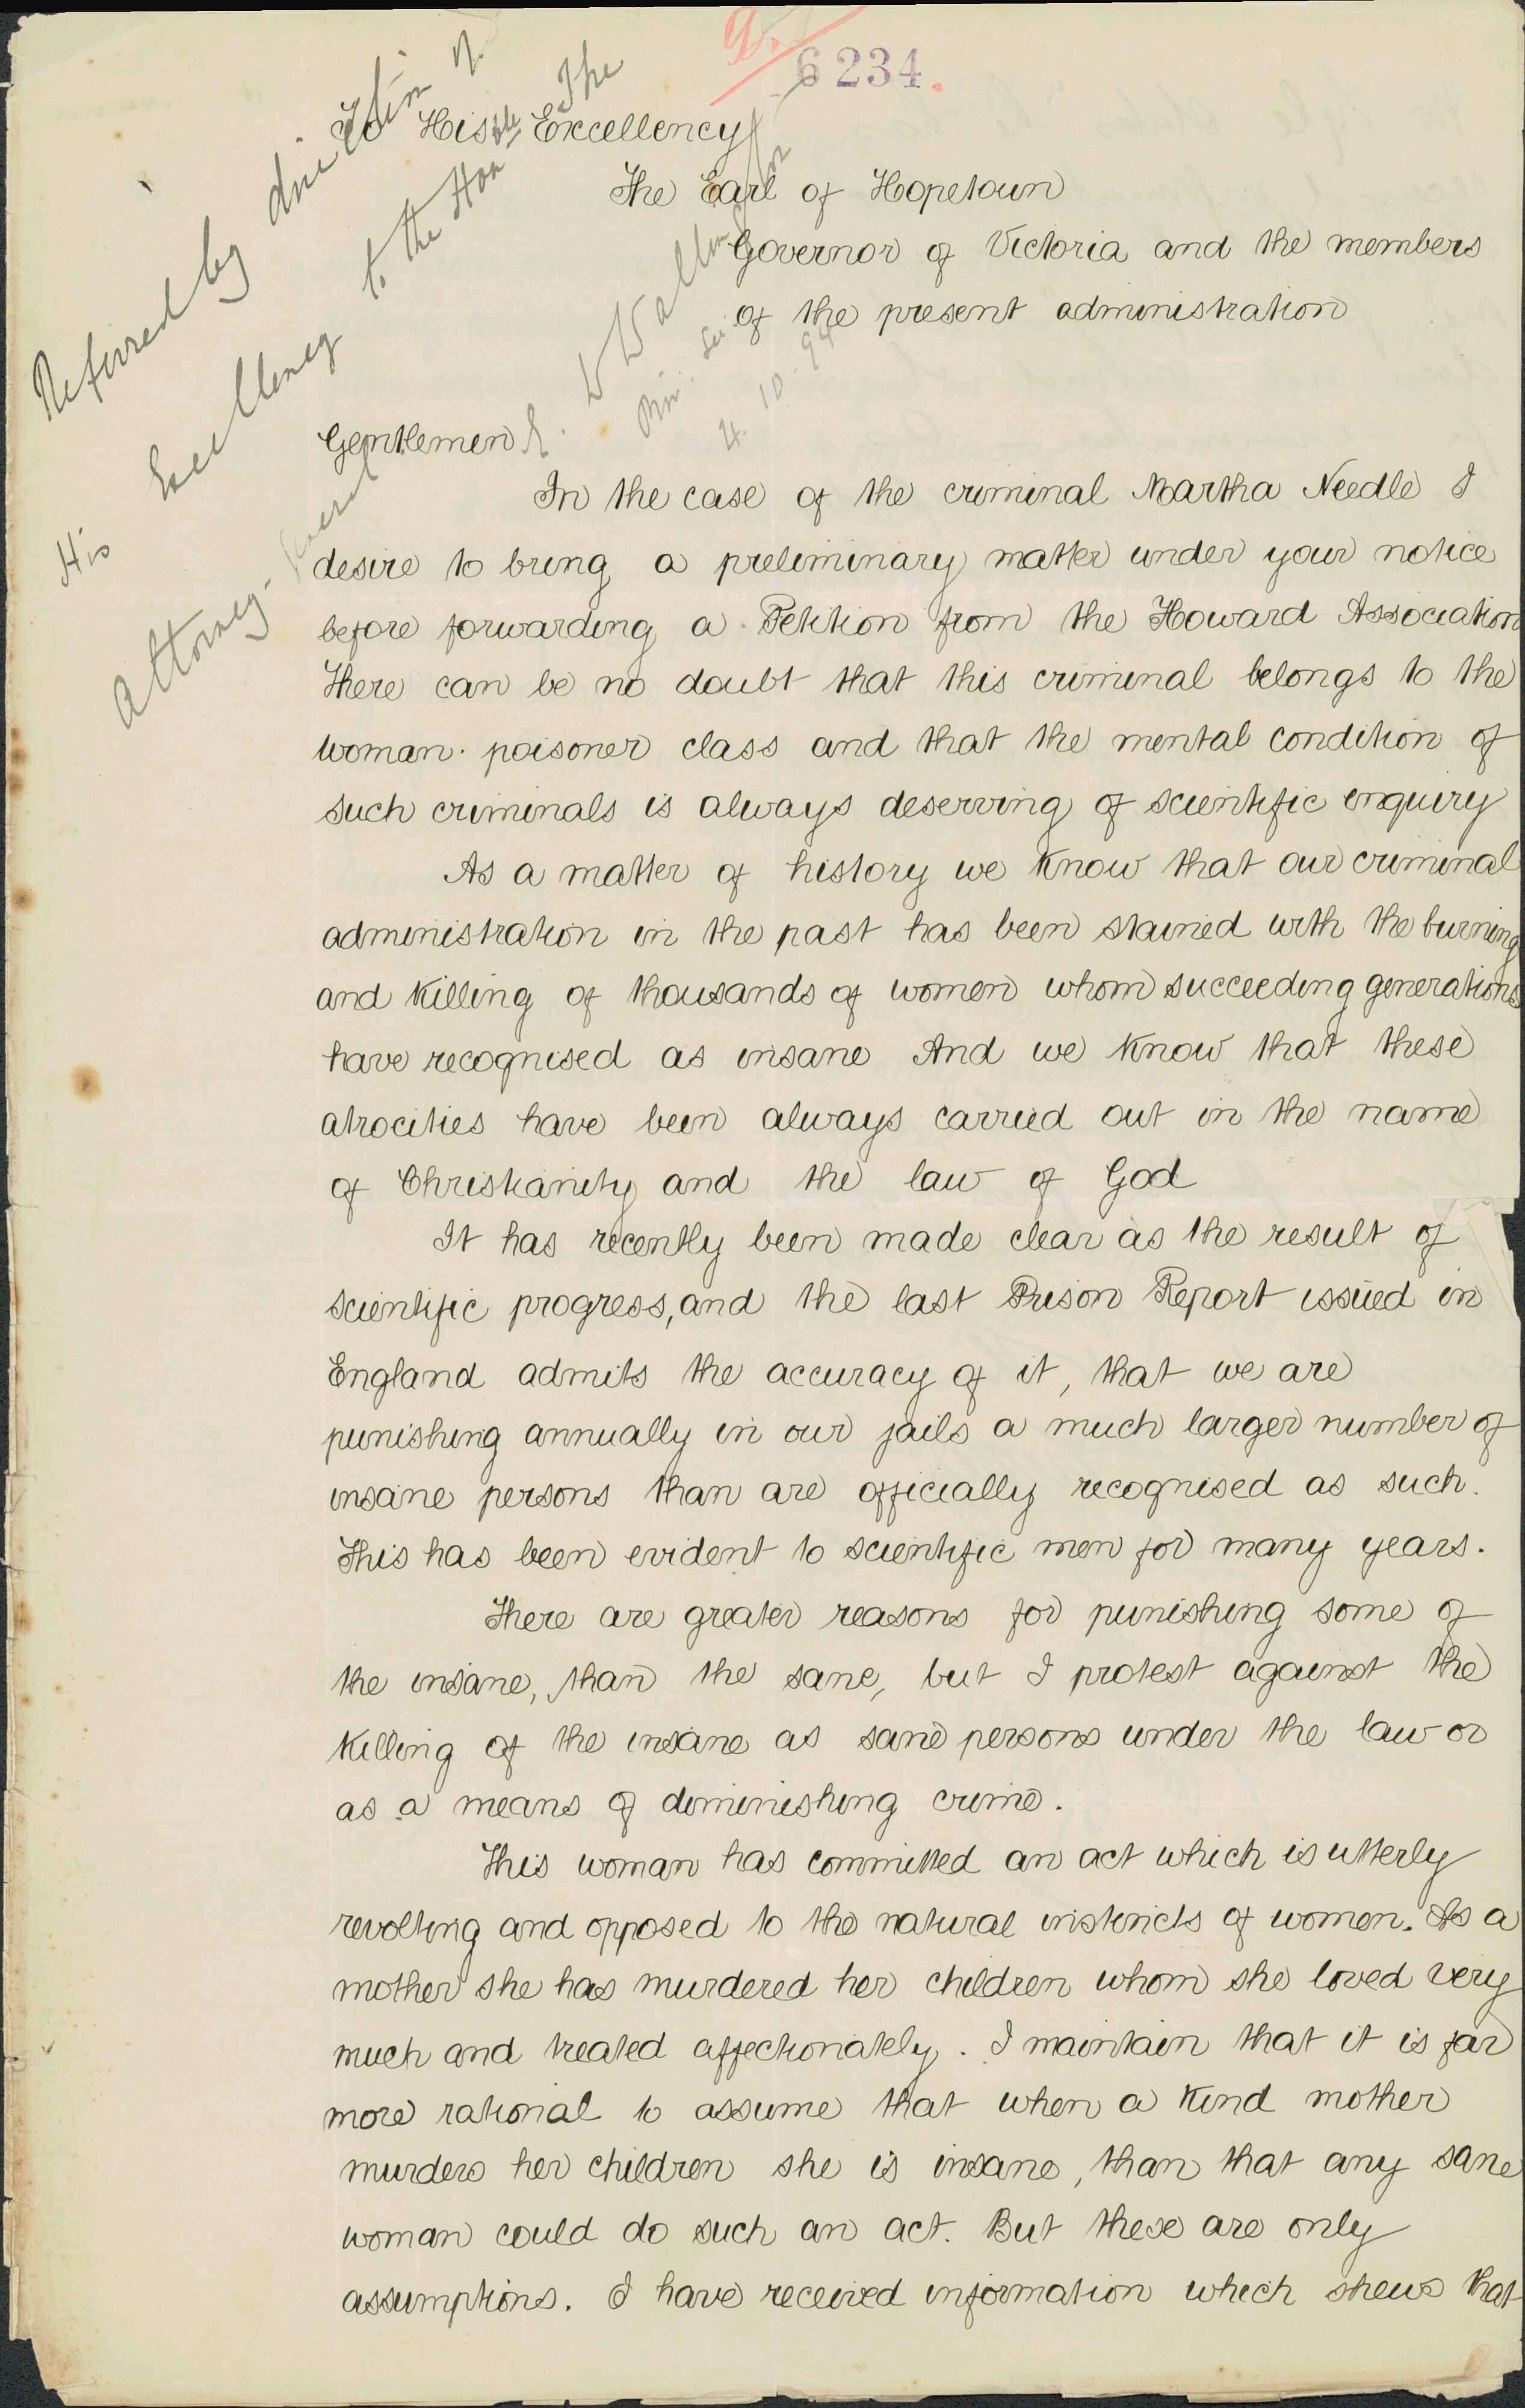 6234.
To His Excellency
The Earl of Hopetoun
Governor of Victoria and the members
of the present administration
Referred by direction of
His Excellency The
to the Honble
Attorney-General
4.10.94
Gentlemen
In the case of the criminal Martha Needle I
desire to bring a preliminary matter under your notice
before forwarding a Petition from the Howard Association
There can be no doubt that this criminal belongs to the
woman-poisoner class and that the mental condition of
such criminals is always deserving of scientific enquiry
As a matter of history we know that our criminal
administration in the past has been stained with the burning
and killing of thousands of women whom succeeding generations
have recognised as insane And we know that these
atrocities have been always carried out in the name
of Christianity and the law of God
It has recently been made clear as the result of
scientific progress, and the last Prison Report issued in
England admits the accuracy of it, that we are
punishing annually in our jails a much larger number of
insane persons than are officially recognised as such.
This has been evident to scientific men for many years.
There are greater reasons for punishing some of
the insane, than the sane, but I protest against the
killing of the insane as sane persons under the law or
as a means of diminishing crime.
This woman has committed an act which is utterly
revolting and opposed to the natural instincts of women. As a
mother she has murdered her children whom she loved very
much and treated affectionately. I maintain that it is far
more rational to assume that when a kind mother
murders her children she is insane, than that any sane
woman could do such an act. But these are only
assumptions. I have received information which shews that